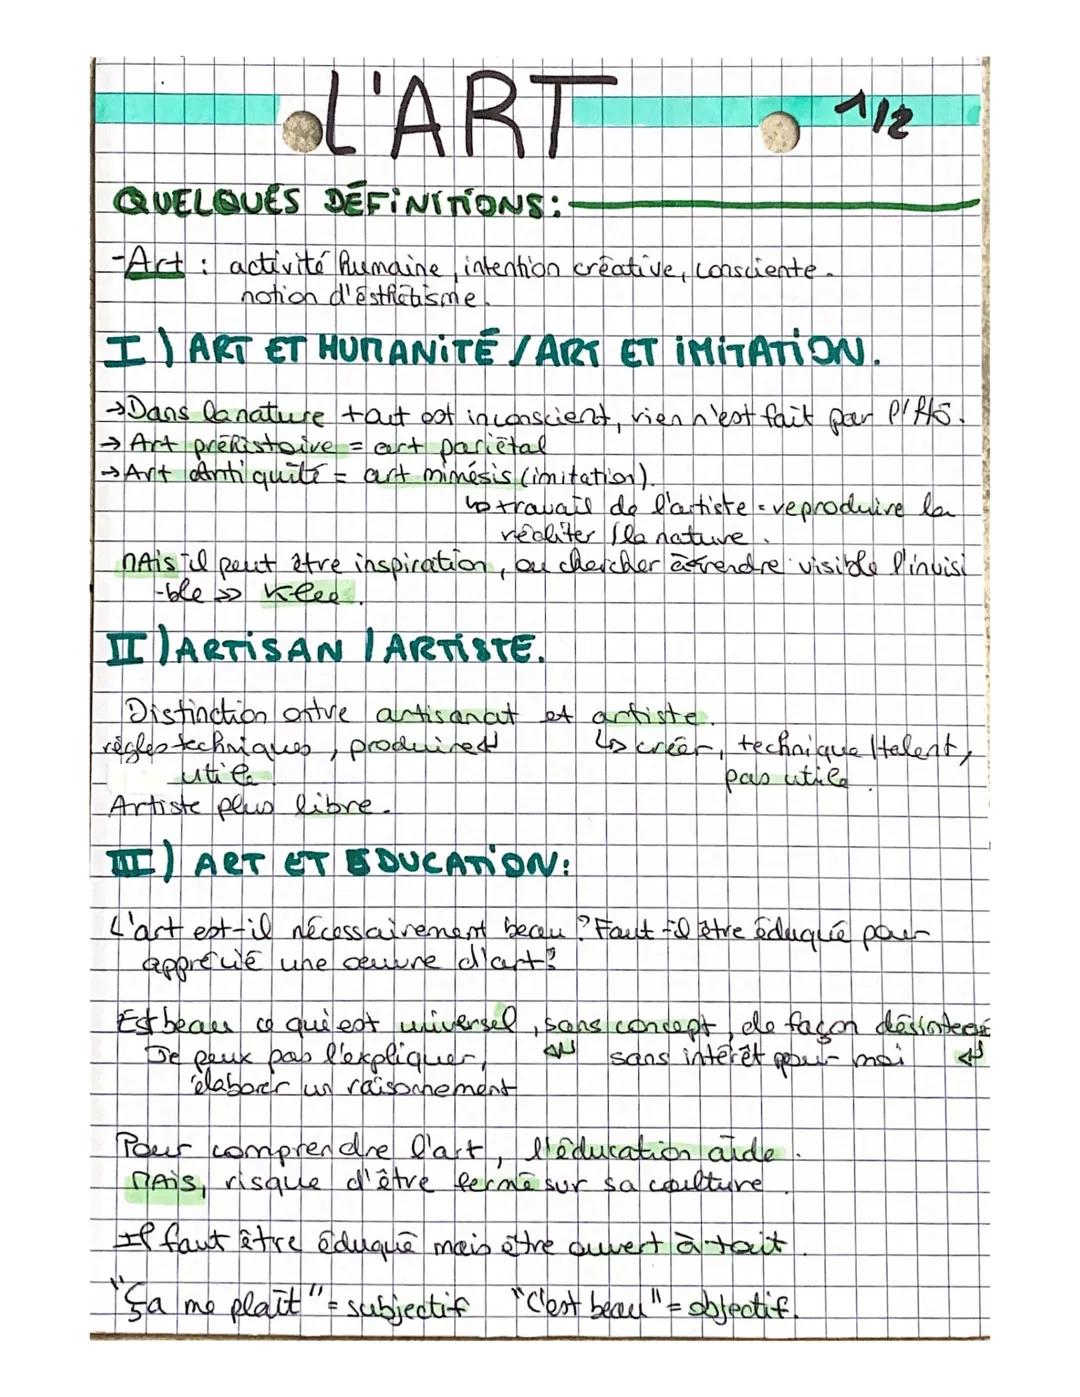 L'ART
1/2
QUELQUES DÉFINITIONS:
-Art : activité humaine, intention créative, consciente.
notion d'ésthétisme.
I) ART ET HUMANITÉ / ART ET IMITATION.
→Dans la nature tout est inconscient, rien n'est fait par l'Hô.
→ Art préhistoire = art pariétal
→Art Antiquité = art mimésis (imitation).
↳ travail de l'artiste = reproduire la
réaliter / la nature.
MAis il peut être inspiration, ou chercher à rendre visible l'invisi
-ble => Klee.
II) ARTISAN / ARTISTE.
Distinction entre artisanat et artiste.
règles techniques, produire
↳ créer, technique / talent,
utile
pas utile.
Artiste plus libre.
III) ART ET EDUCATION:
L'art est-il nécessairement beau ? Faut-il être éduqué pour
apprécié une oeuvre d'art?
Est beau ce qui est universel, sans concept, de façon désinteréssé
Je peux pas l'expliquer, ↲ sans intérêt pour moi ↲
élaborer un raisonnement
Pour comprendre l'art, l'éducation aide.
MAis, risque d'être fermé sur sa coulture.
Il faut être éduqué mais être ouvert à tout.
"Ça me plaît" = subjectif "C'est beau" = objectif.